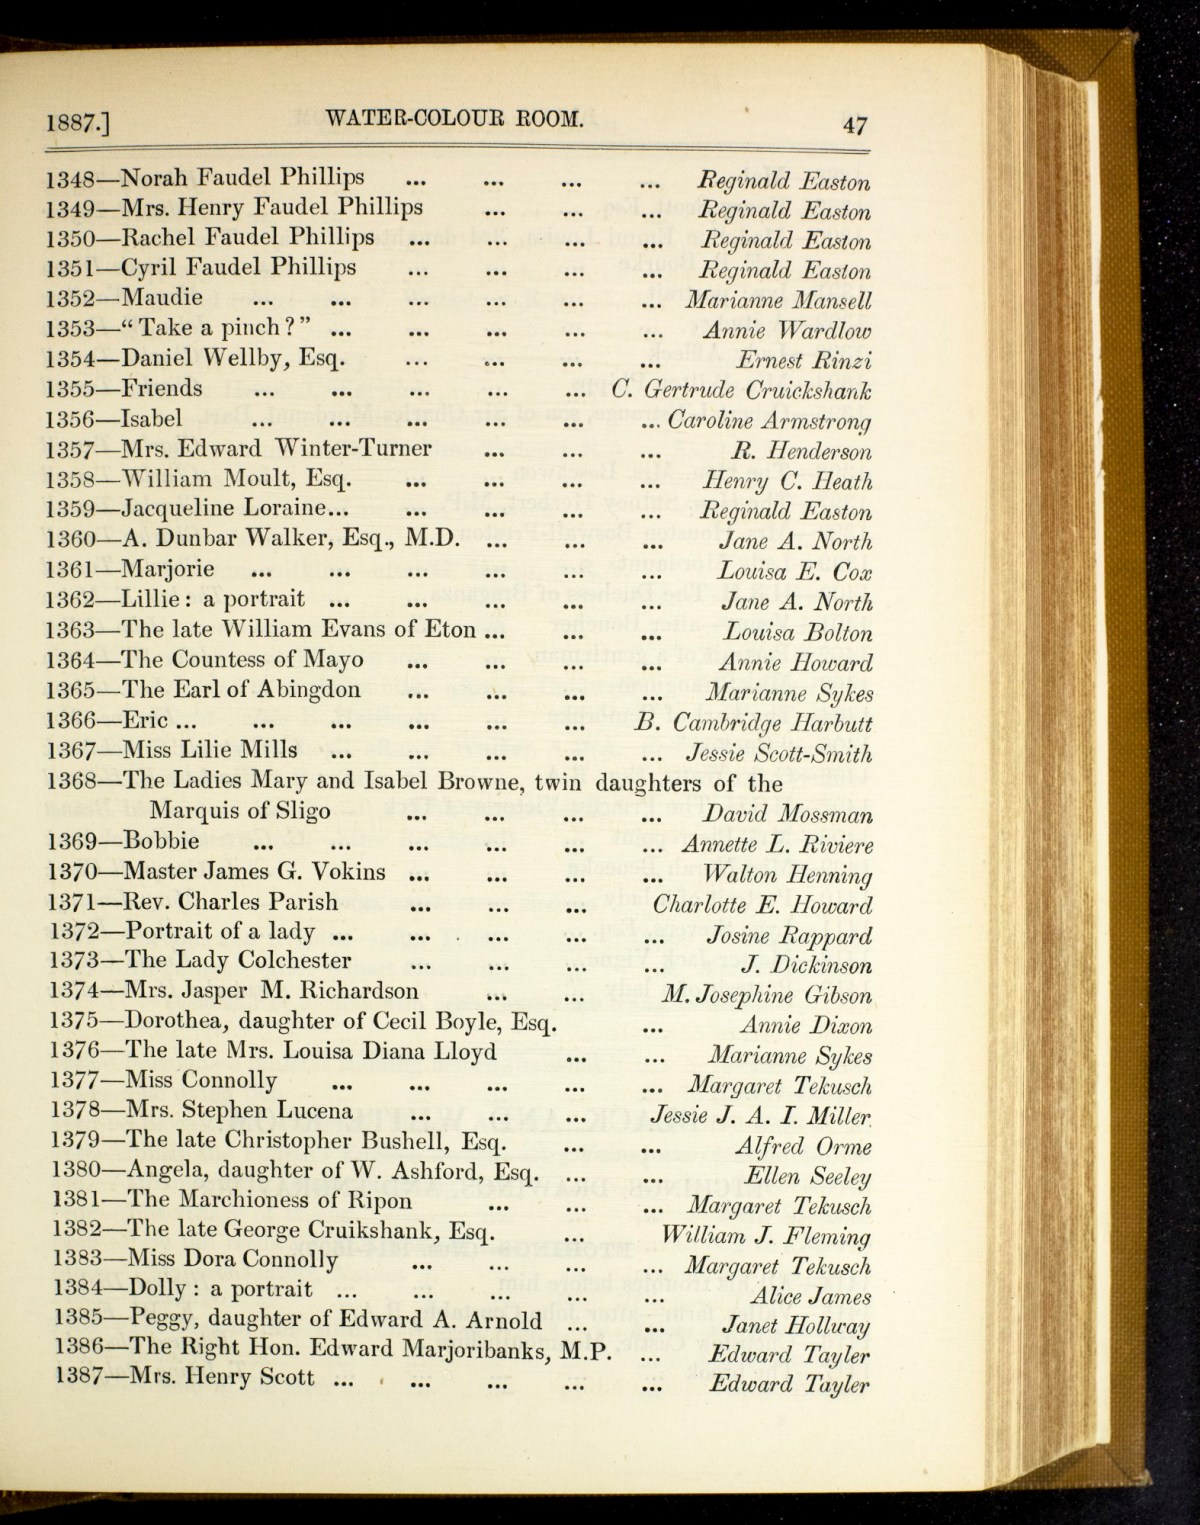 1887.] WATER-COLOUR ROOM. 47
1348—Norah Faudel Phillips ... ... ... ... Reginald Easton
1349—Mrs. Henry Faudel Phillips ... ... ... Reginald Easton
1350—Rachel Faudel Phillips ... ... ... ... Reginald Easton
1351—Cyril Faudel Phillips ... ... ... ... Reginald Easton
1352—Maudie ... ... ... ... ... ... Marianne Mansell
1353—“Take a pinch?” ... ... ... ... ... Annie Wardlow
1354—Daniel Wellby, Esq. ... ... ... ... Ernest Rinzi
1355—Friends ... ... ... ... ... C. Gertrude Cruickshank
1356—Isabel ... ... ... ... ... ... Caroline Armstrong
1357—Mrs. Edward Winter-Turner ... ... ... R. Henderson
1358—William Moult, Esq. ... ... ... ... Henry C. Heath
1359—Jacqueline Loraine... ... ... ... ... Reginald Easton
1360—A. Dunbar Walker, Esq., M.D. ... ... ... Jane A. North
1361—Marjorie ... ... ... ... ... ... Louisa E. Cox
1362—Lillie: a portrait ... ... ... ... ... Jane A. North
1363—The late William Evans of Eton ... ... ... Louisa Bolton
1364—The Countess of Mayo ... ... ... ... Annie Howard
1365—The Earl of Abingdon ... ... ... ... Marianne Sykes
1366—Eric ... ... ... ... ... ... B. Cambridge Harbutt
1367—Miss Lilie Mills ... ... ... ... ... Jessie Scott-Smith
1368—The Ladies Mary and Isabel Browne, twin daughters of the
Marquis of Sligo ... ... ... ... David Mossman
1369—Bobbie ... ... ... ... ... ... Annette L. Riviere
1370—Master James G. Vokins ... ... ... ... Walton Henning
1371—Rev. Charles Parish ... ... ... Charlotte E. Howard
1372—Portrait of a lady ... ... ... ... ... Josine Rappard
1373—The Lady Colchester ... ... ... ... J. Dickinson
1374—Mrs. Jasper M. Richardson ... ... M. Josephine Gibson
1375—Dorothea, daughter of Cecil Boyle, Esq. ... Annie Dixon
1376—The late Mrs. Louisa Diana Lloyd ... ... Marianne Sykes
1377—Miss Connolly ... ... ... ... ... Margaret Tekusch
1378—Mrs. Stephen Lucena ... ... ... Jessie J. A. I. Miller
1379—The late Christopher Bushell, Esq. ... ... Alfred Orme
1380—Angela, daughter of W. Ashford, Esq. ... ... Ellen Seeley
1381—The Marchioness of Ripon ... ... ... Margaret Tekusch
1382—The late George Cruikshank, Esq. ... William J. Fleming
1383—Miss Dora Connolly ... ... ... ... Margaret Tekusch
1384—Dolly: a portrait ... ... ... ... ... Alice James
1385—Peggy, daughter of Edward A. Arnold ... ... Janet Hollway
1386—The Right Hon. Edward Marjoribanks, M.P. ... Edward Tayler
1387—Mrs. Henry Scott ... ... ... ... ... Edward Tayler